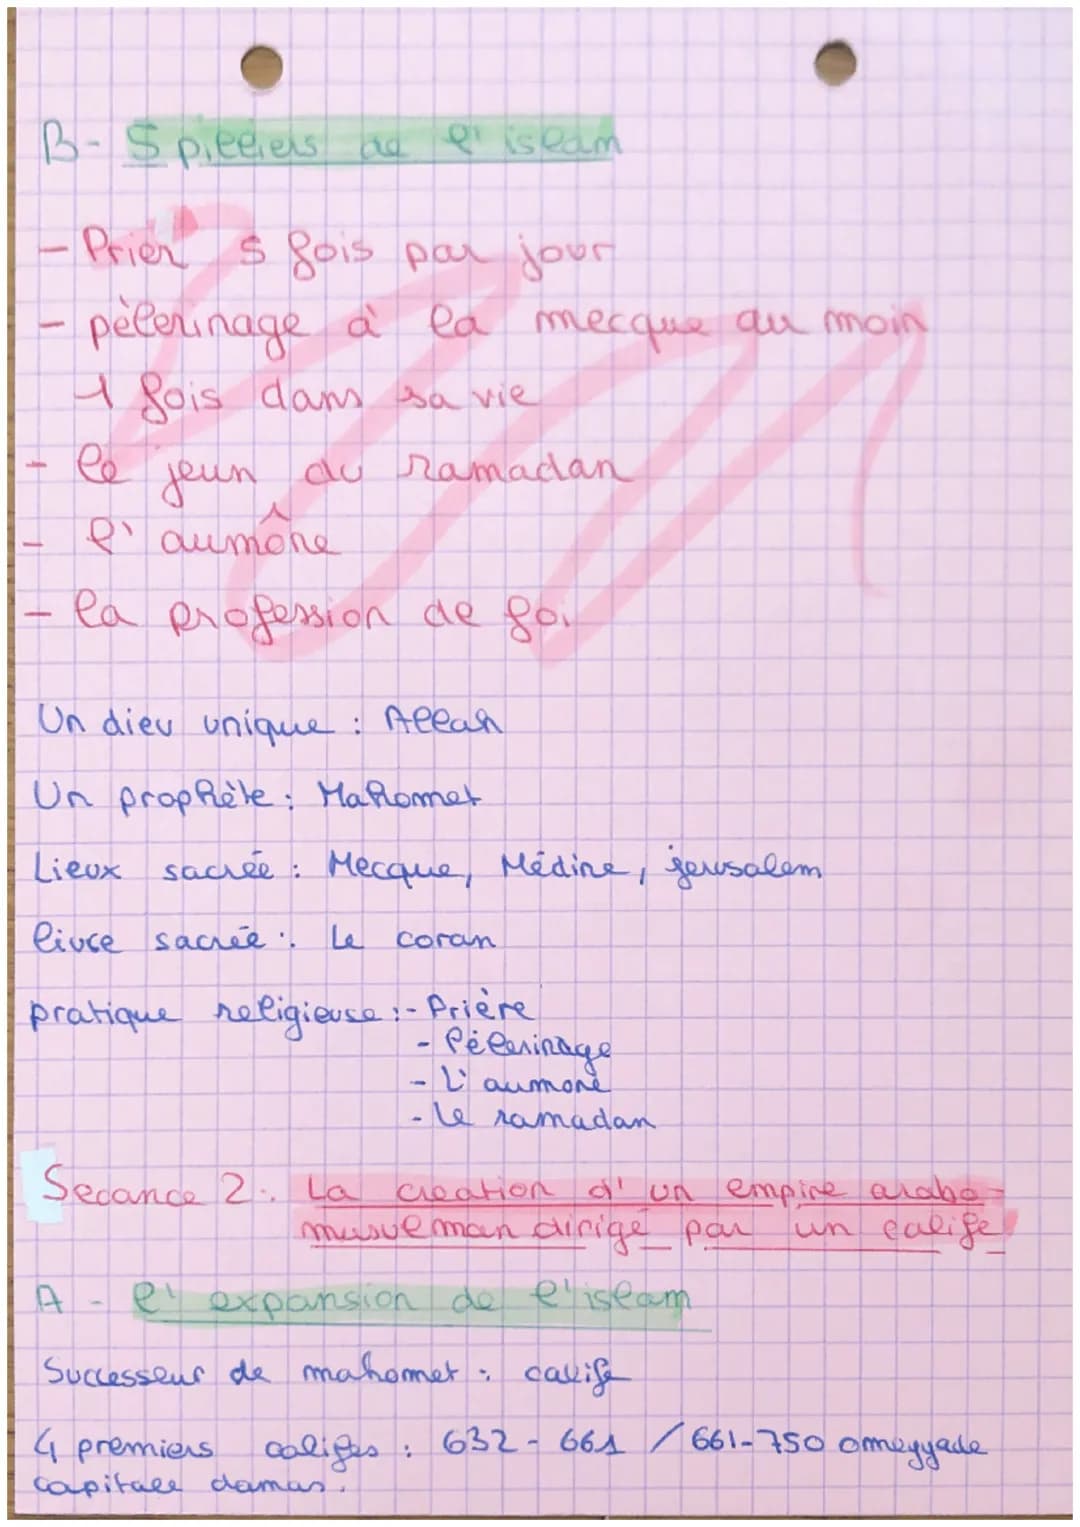 B- 5 pilliers de l'islam
- Prier 5 fois par jour
- pèlerinage à la mecque au moin
1 fois dans sa vie
- le jeun du ramadan
- l'aumône
- la profession de foi
Un dieu unique : Allah
Un prophète : Mahomet
Lieux sacrée : Mecque, Médine, jerusalem
livre sacrée : Le coran
pratique religieuse :- Prière
- Pélerinage
- L'aumone
- Le ramadan
Secance 2 : La creation d'un empire arabo-
musulman dirigé par un calife
A - l'expansion de l'islam
Successeur de mahomet : calife
4 premiers califes : 632 - 661 / 661-750 omeyyade
capitale damas.